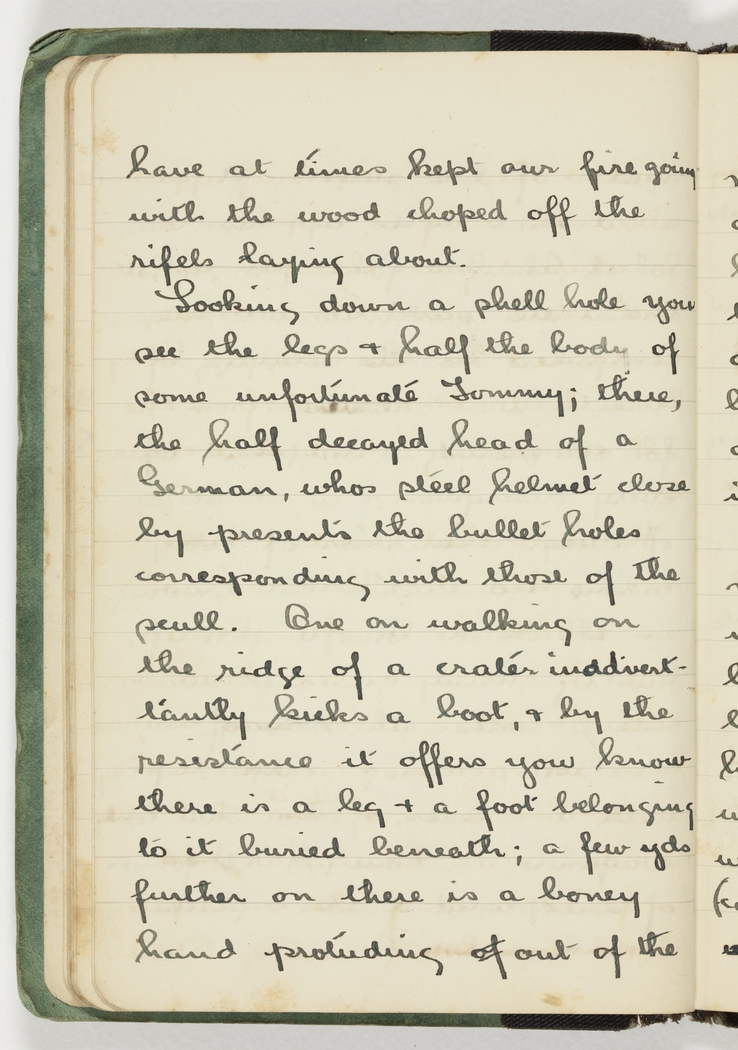 have at times kept our fire going
with the wood choped off the
rifels laying about.
Looking down a shell hole you
see the legs + half the body of
some unfortunate Tommy; there,
the half decayed head of a
German, whos steel helmet close
by presents the bullet holes
corresponding with those of the
scull. One on walking on
the ridge of a crater inddvert-
tantly kicks a boot, + by the
resistance it offers you know
there is a leg + a foot belonging
to it buried beneath; a few yds
further on there is a boney
hand protuding of out of the